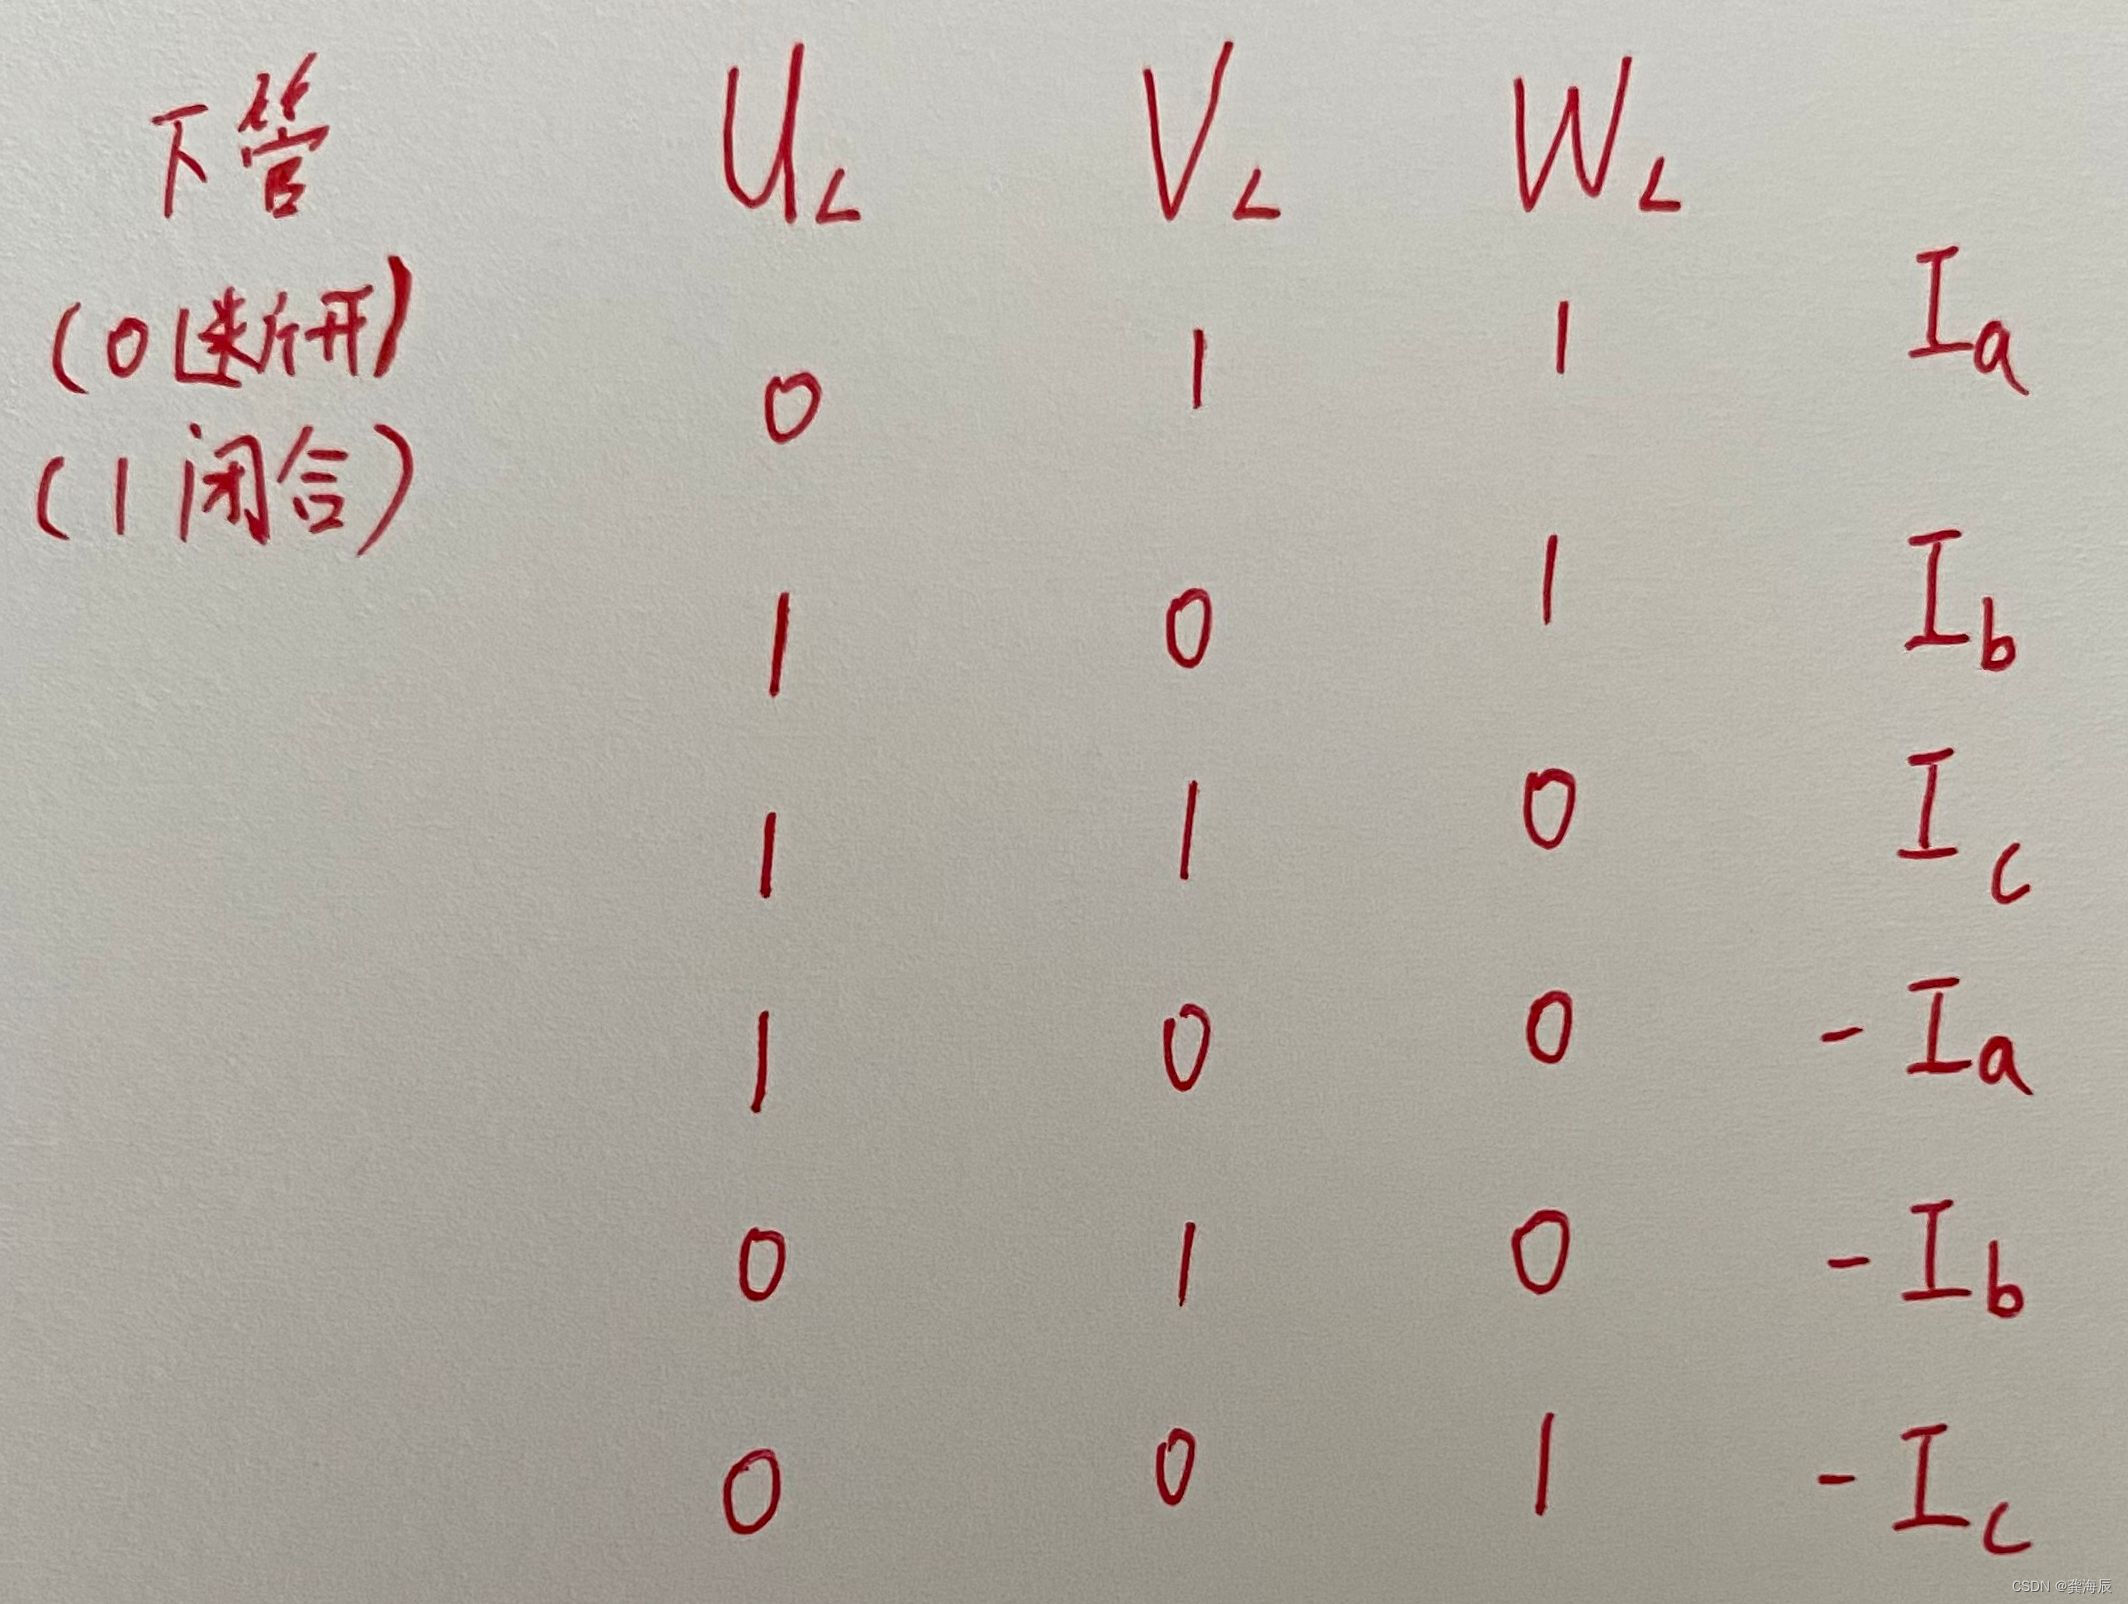 下管 U_L V_L W_L
(0 断开) 0 1 1 I_a
(1 闭合)
1 0 1 I_b
1 1 0 I_c
1 0 0 -I_a
0 1 0 -I_b
0 0 1 -I_c
CSDN @龚海辰